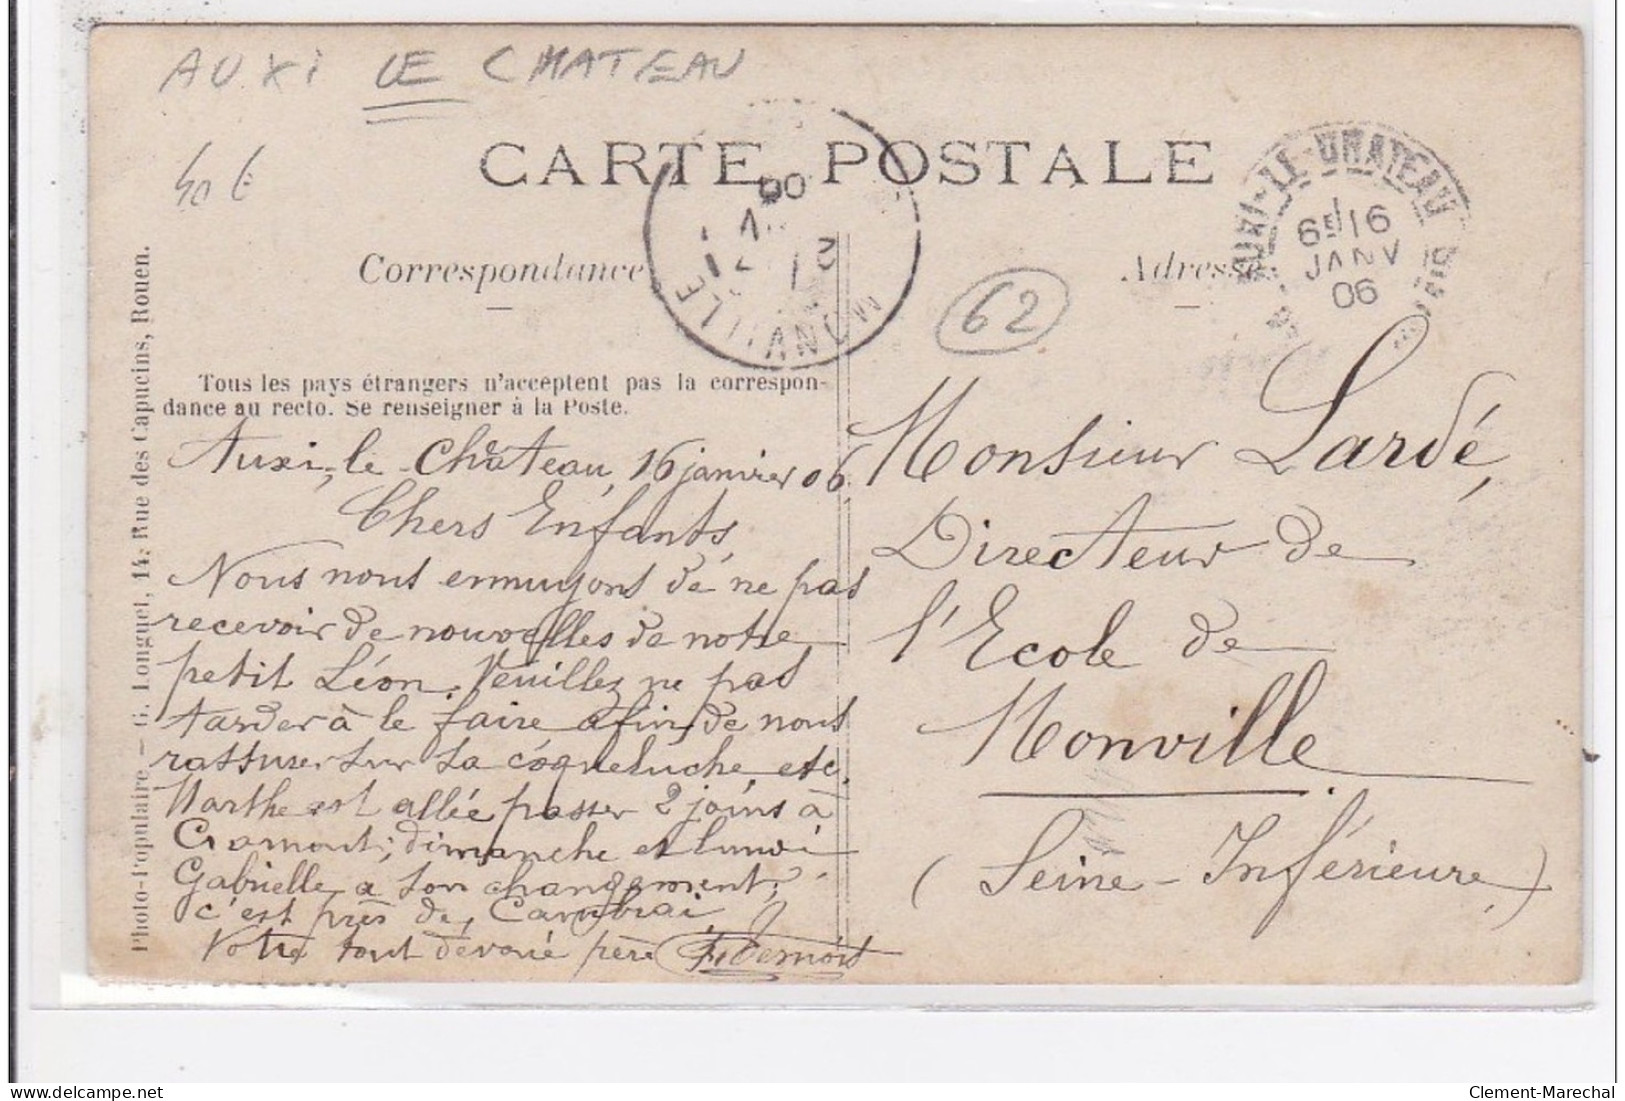 AUXI LE CHATEAU
40 €
CARTE POSTALE
Correspondance
Adresse
MONVILLE
06
AUXI-LE-CHATEAU
6E 16
JANV
06
62
Tous les pays étrangers n'acceptent pas la correspon-
dance au recto. Se renseigner à la Poste.
Photo-Populaire – G. Longuet, 14, Rue des Capucins, Rouen.
Auxi-le-Château, 16 janvier 06
Chers Enfants,
Nous nous ennuyons dé ne pas
recevoir de nouvelles de notre
petit Léon. Veuillez ne pas
tarder à le faire afin de nous
rassurer sur sa coqueluche, etc.
Marthe est allée passer 2 jours à
Cramont; dimanche et lundi
Gabrielle a son changement;
c'est près de Cambrai
Votre tout dévoué père
Monsieur Lardé,
Directeur de
l'Ecole de
Monville
(Seine-Inférieure)
Clement-Marechal
www.delcampe.net